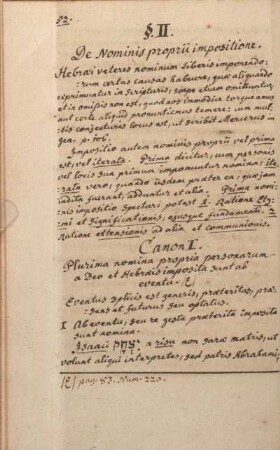 52.
§. II.
De Nominis proprii impositione.
Hebræi veteres nominum liberis imponendo:
rum certas causas habuere, quæ aliquando
exprimuntur in Scripturis, sæpe etiam omittuntur,
et in omissis non est, quod nos immodice torqueamus
aut certe aliquid pronuntiemus temere: cum mul:
tis conjecturis locus est, ut scribit Mercerus in
gen. p. 106.
Impositio autem nominis proprii vel prima
est, vel iterata. Prima dicitur, cum personis
vel locis sua primum imponuntur nomina: ite:
rata vero, quando iisdem præter ea, quæ jam
indita fuerant, adduntur et alia. Primæ nomi:
nis impositio spectari potest 1. Ratione Ety:
mi et significationis, ejusque fundamenti. 2.
Ratione extensionis ad alia et communionis.
Canon I.
Plurima nomina propria personarum
a Deo et Hebræis imposita sunt ab
eventu /E/
Eventus triplicis est generis, præteritus, præ:
sens et futurus seu optatus.
I Ab eventu, seu re gesta præterita imposita
sunt nomina.
Isaaci יצחק a risu non Saræ matris, ut
volunt aliqui interpretes, sed patris Abrahami,
/E/ pag. 83. Num. 220.